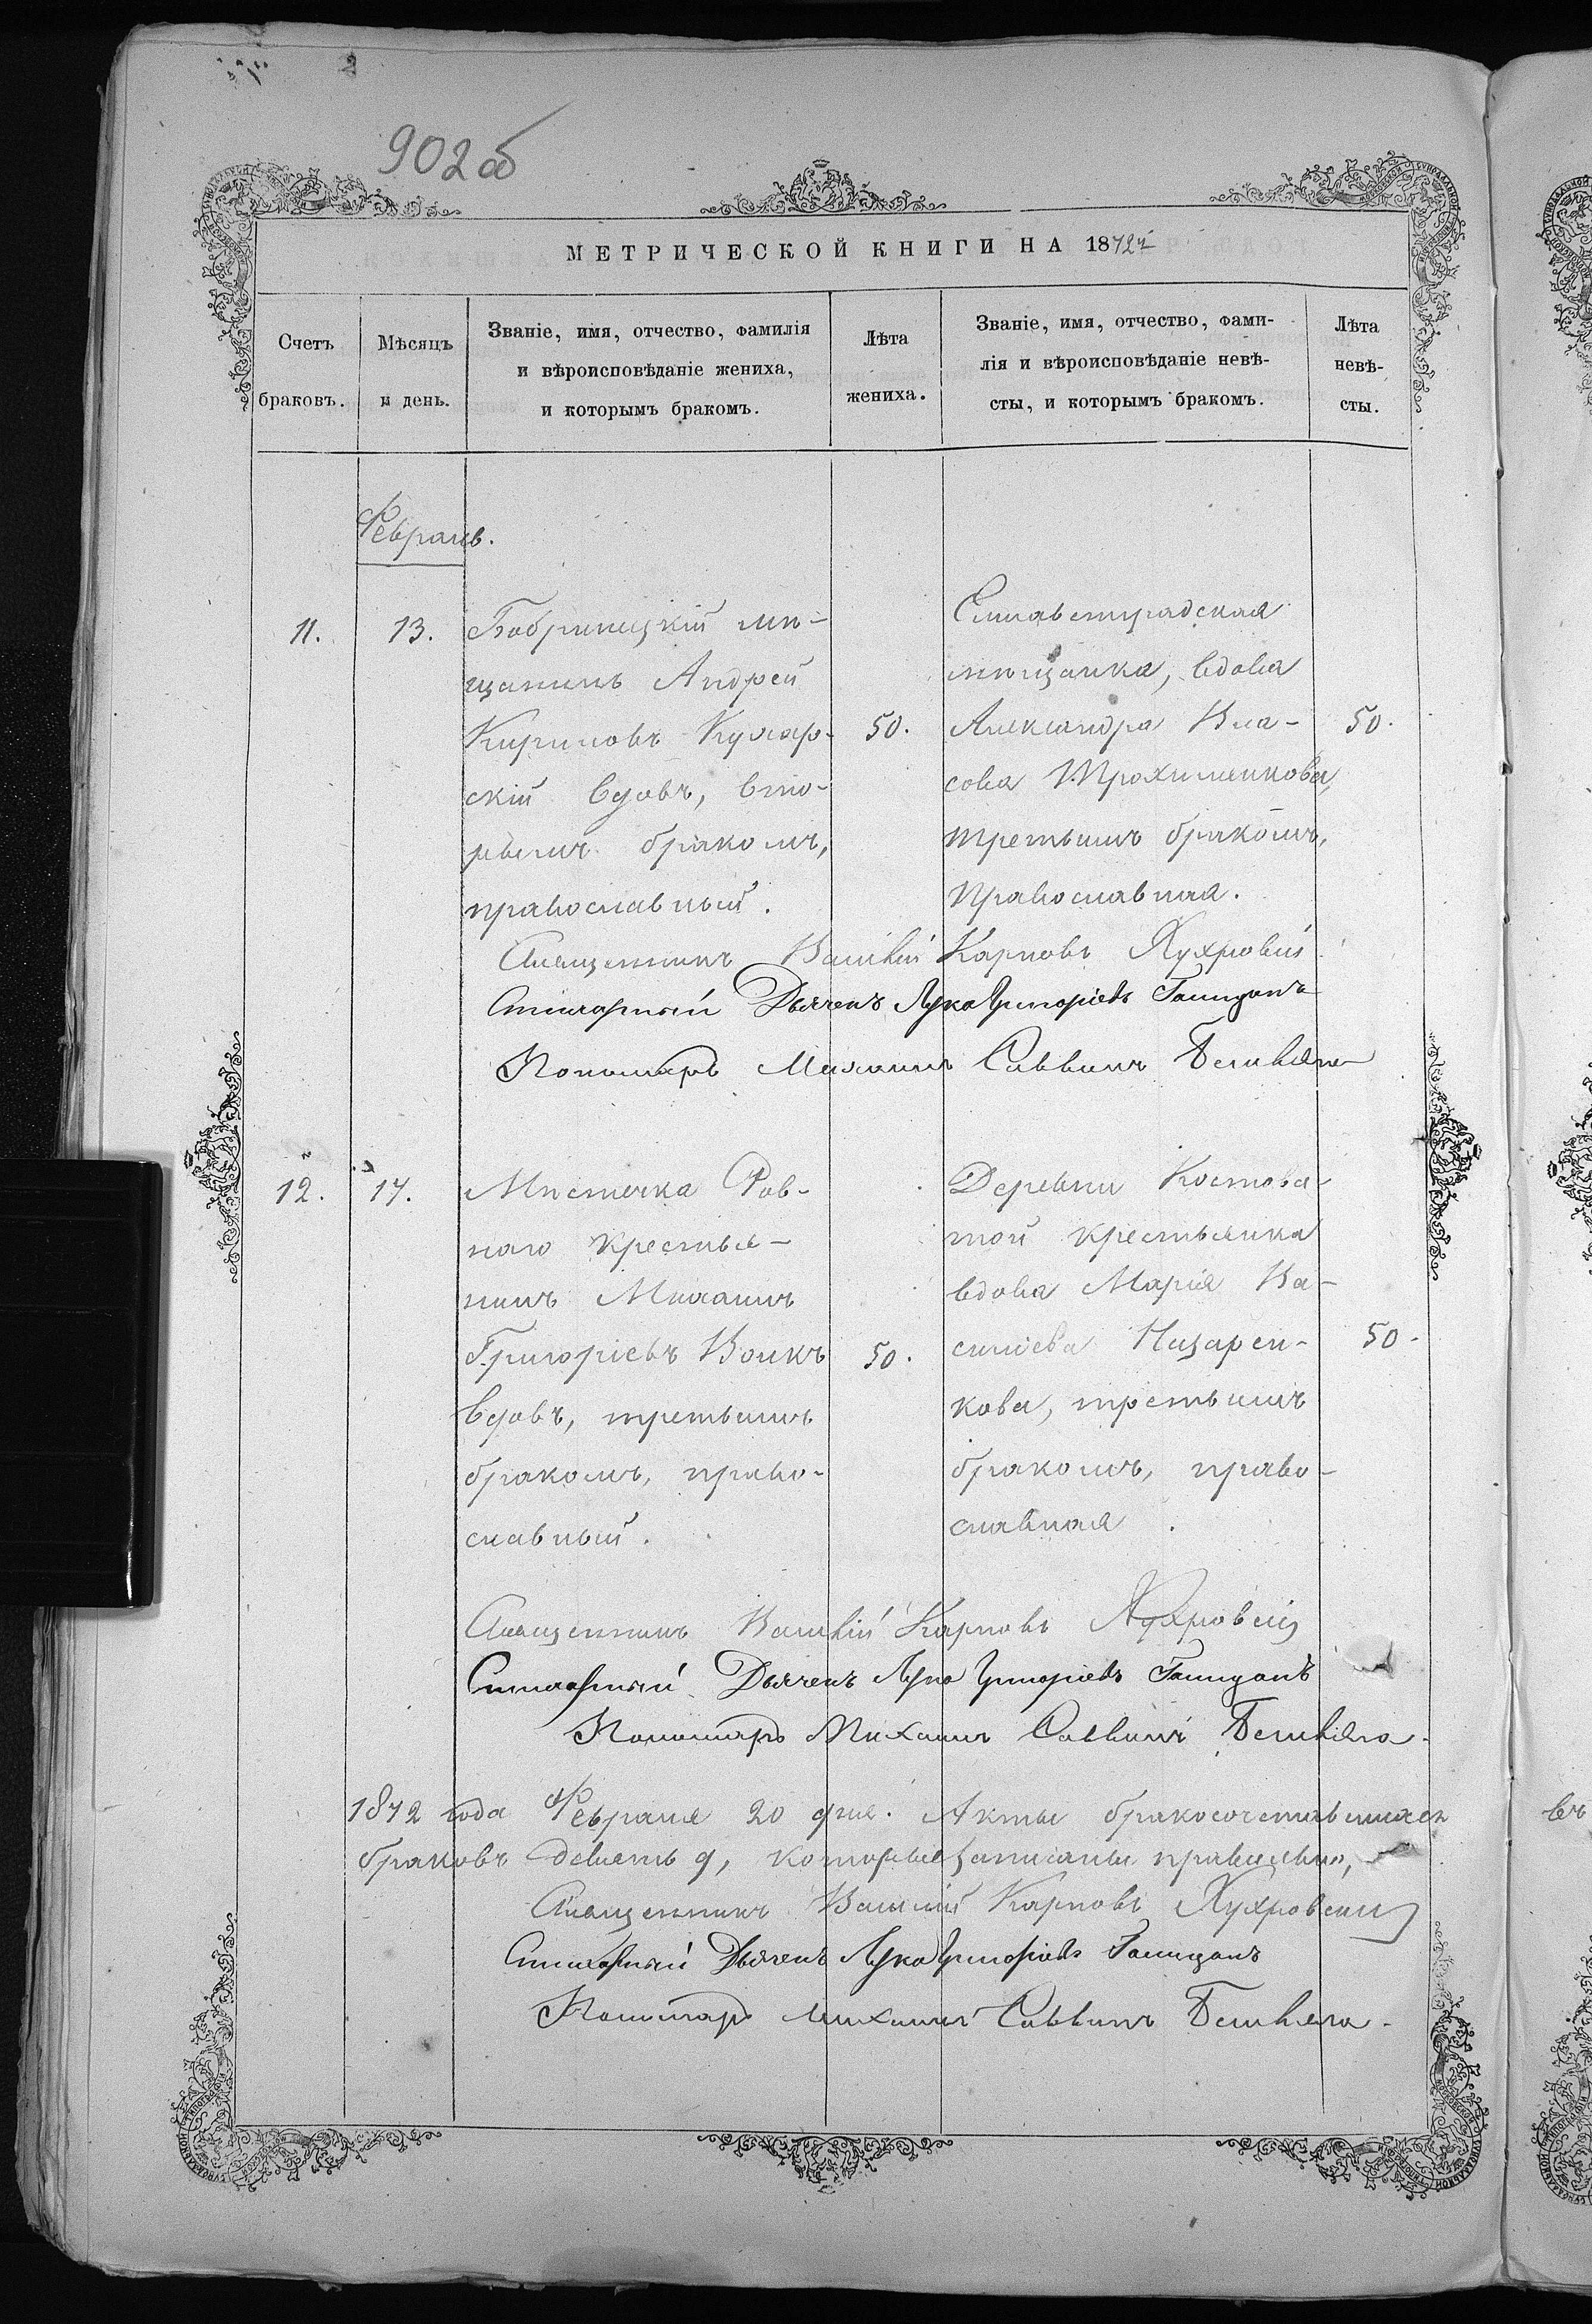 902 об
МЕТРИЧЕСКОЙ КНИГИ НА 1872й
Счетъ браковъ.
Мѣсяцъ и день.
Званіе, имя, отчество, фамилія
и вѣроисповѣданіе жениха,
и которымъ бракомъ.
Лѣта жениха.
Званіе, имя, отчество, фами-
лія и вѣроисповѣданіе невѣ-
сты, и которымъ бракомъ.
Лѣта невѣ-
сты.
Февраль.
11.
13.
Бобринецкій мѣ-
щанинъ Андрей
Кириловъ Кухар-
скій вдовъ, вто-
рымъ бракомъ,
православный.
50.
Елисаветградская
мѣщанка, вдова
Александра Вла-
сова Трохименкова,
третьимъ бракомъ,
православная.
50.
Священникъ Василій Карповъ
Стихарный Дьячекъ Лука Григоріевъ
Пономарь Михаилъ Саввинъ
12.
17.
Мѣстечка Ров-
наго крестья-
нинъ Михаилъ
Григоріевъ Волкъ
вдовъ, третьимъ
бракомъ, право-
славный.
50.
Деревни Костова-
той крестьянка
вдова Марія Ва-
силіева Назарен-
кова, третьимъ
бракомъ, право-
славная.
50.
Священникъ Василій Карповъ
Стихарный Дьячекъ Лука Григоріевъ
Пономарь Михаилъ Саввинъ
1872 года Февраля 20 дня. Акты бракосочетавшихся
браковъ девять 9, которые записаны правильно,
Священникъ Василій Карповъ
Стихарный Дьячекъ Лука Григоріевъ
Пономарь Михаилъ Саввинъ
въ